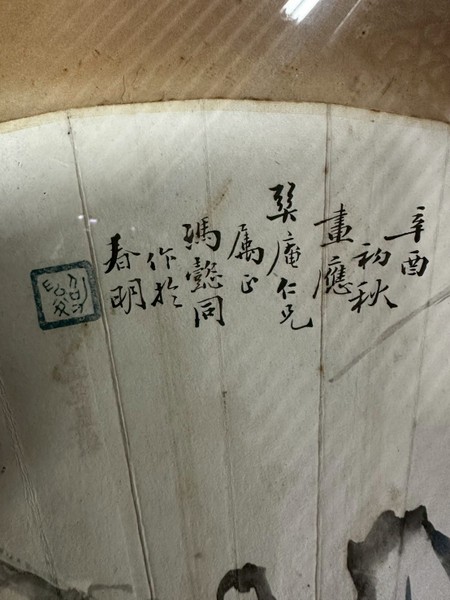 辛酉
初秋
畫應
巽庵仁兄
屬正
馮懿同
作於
春明